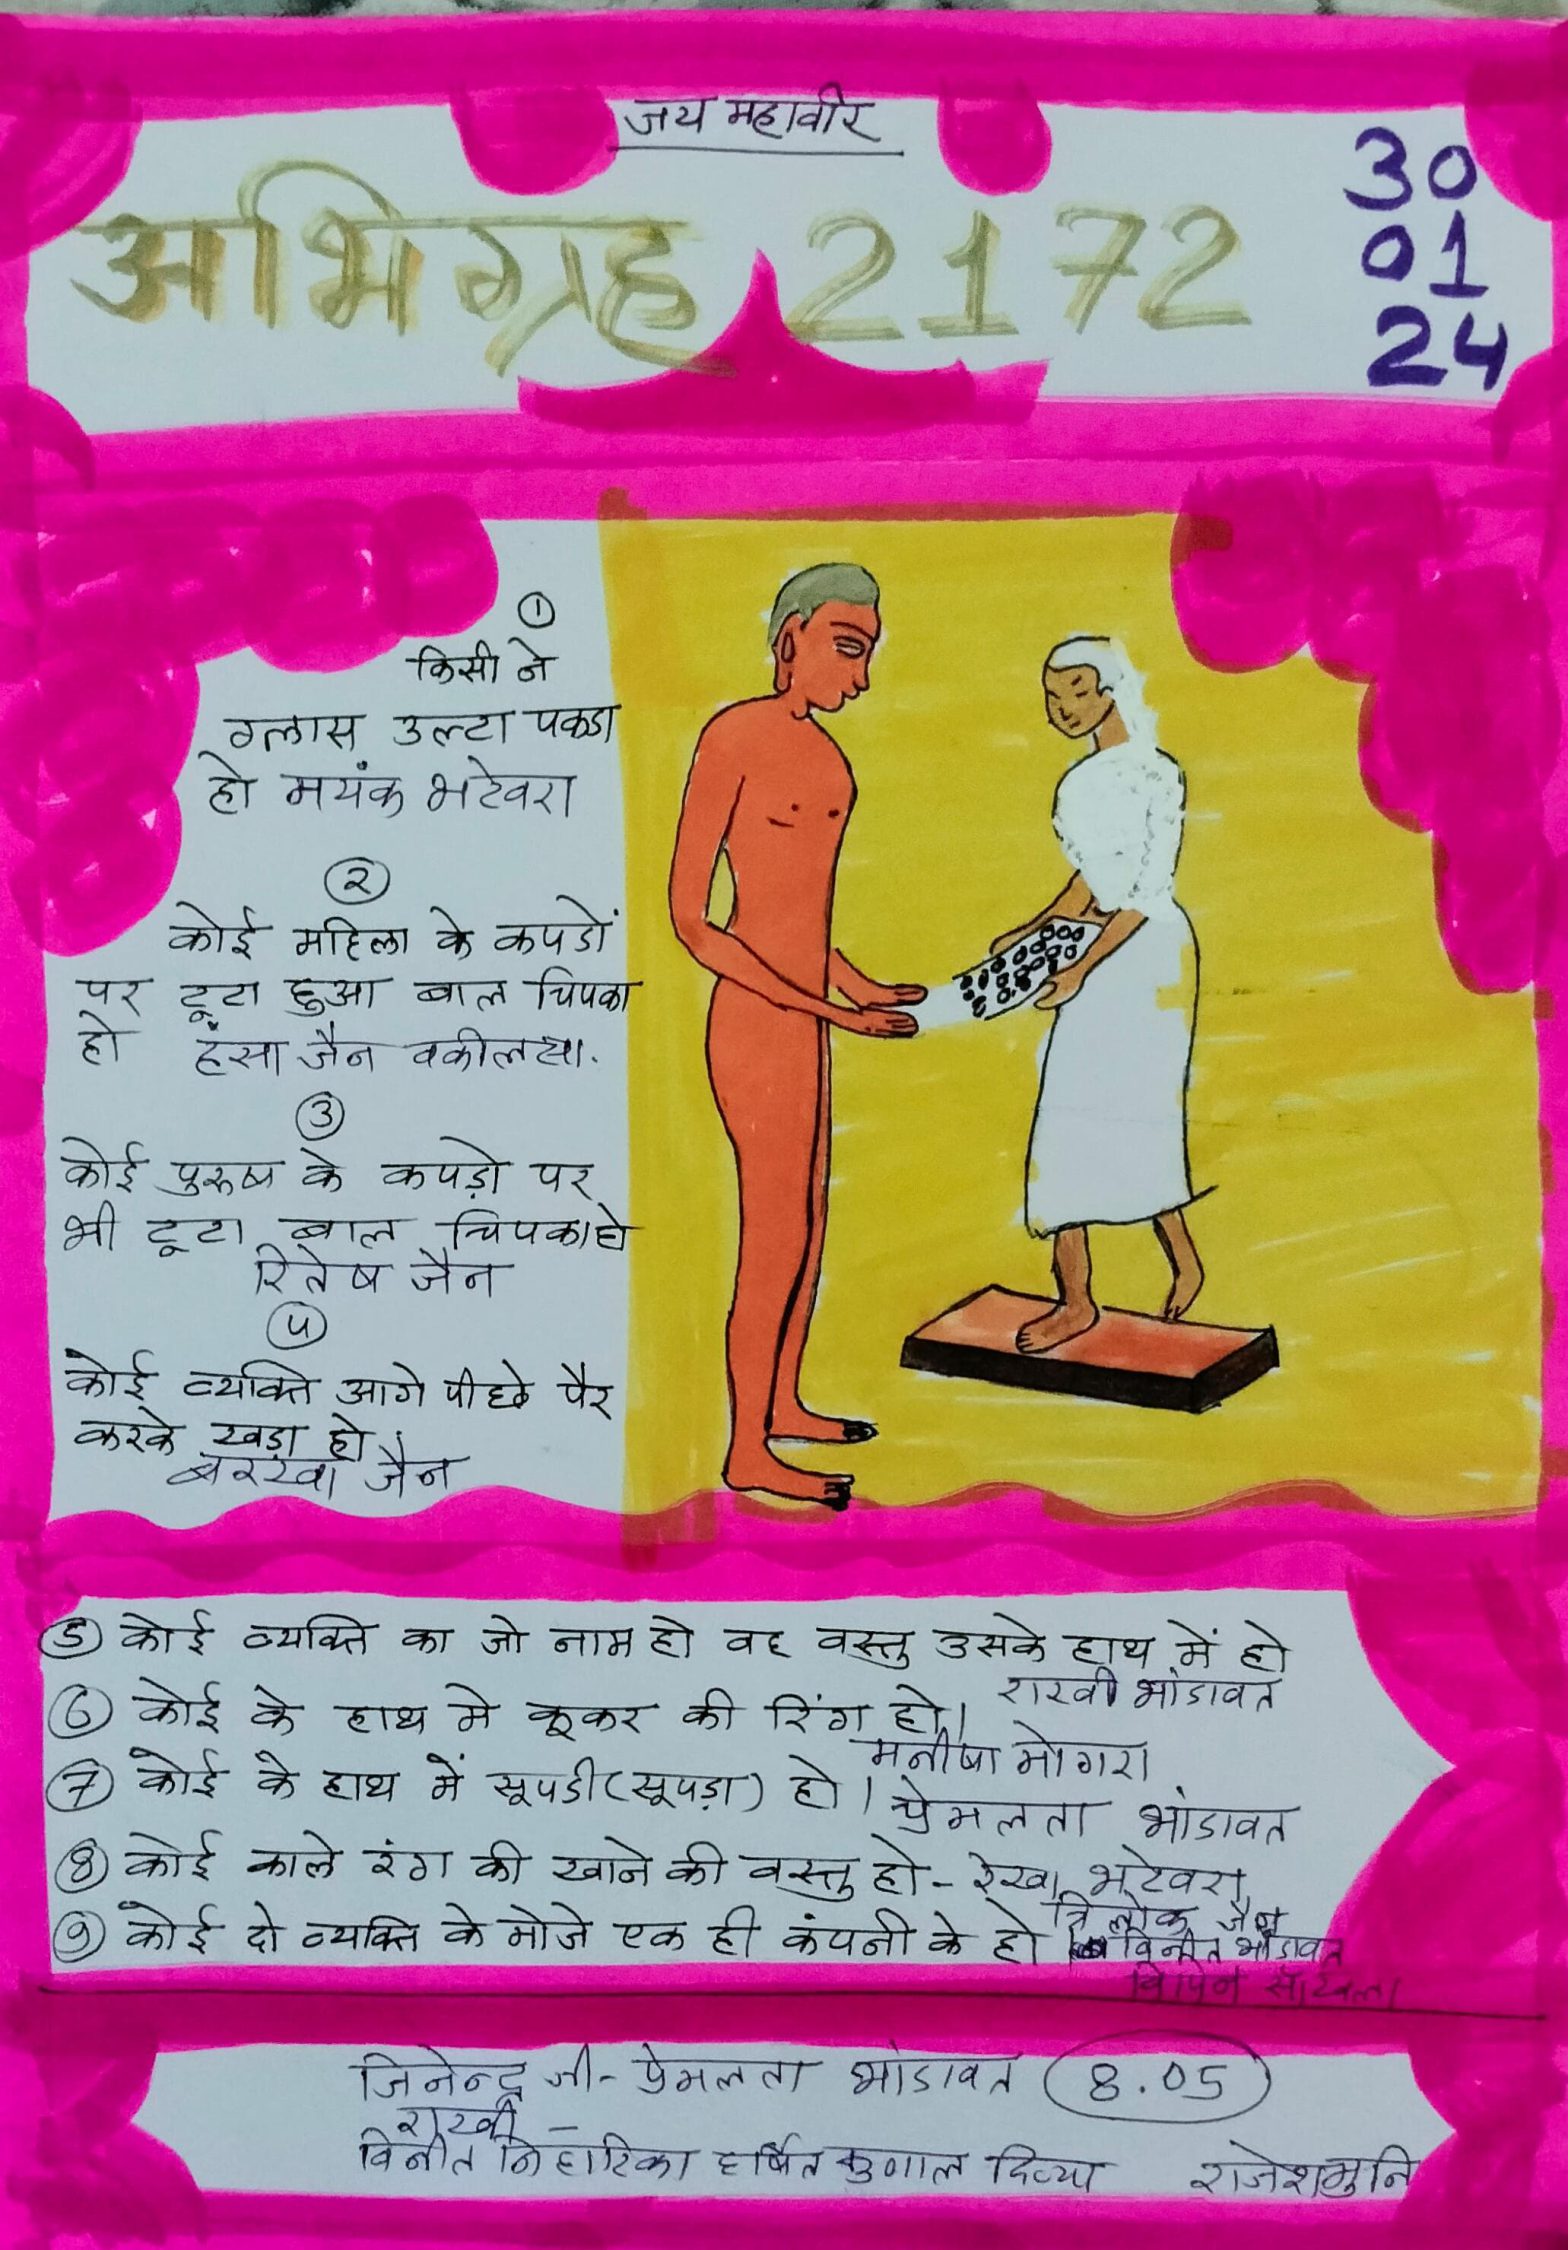 जय महावीर
अभिग्रह 2172
30
01
24
①
किसी ने
ग्लास उल्टा पकडा
हो मयंक भटेवरा
②
कोई महिला के कपडों
पर टूटा हुआ बाल चिपका
हो हंसा जैन वकीलसा.
③
कोई पुरुष के कपड़ो पर
भी टूटा बाल चिपका हो
रितेष जैन
④
कोई व्यक्ति आगे पीछे पैर
करके खड़ा हो।
बरखा जैन
⑤ कोई व्यक्ति का जो नाम हो वह वस्तु उसके हाथ में हो
राखी भांडावत
⑥ कोई के हाथ मे कूकर की रिंग हो।
मनीषा मोगरा
⑦ कोई के हाथ में सूपडी (सूपड़ा) हो। प्रेमलता भांडावत
⑧ कोई काले रंग की खाने की वस्तु हो - रेखा भटेवरा
⑨ कोई दो व्यक्ति के मोजे एक ही कंपनी के हो
त्रिलोक जैन
विनीत भांडावत
विपिन सांखला
जिनेन्द्र जी - प्रेमलता भांडावत 8.05
राखी -
विनीत निहारिका हर्षित कुणाल दिव्या राजेशमुनि